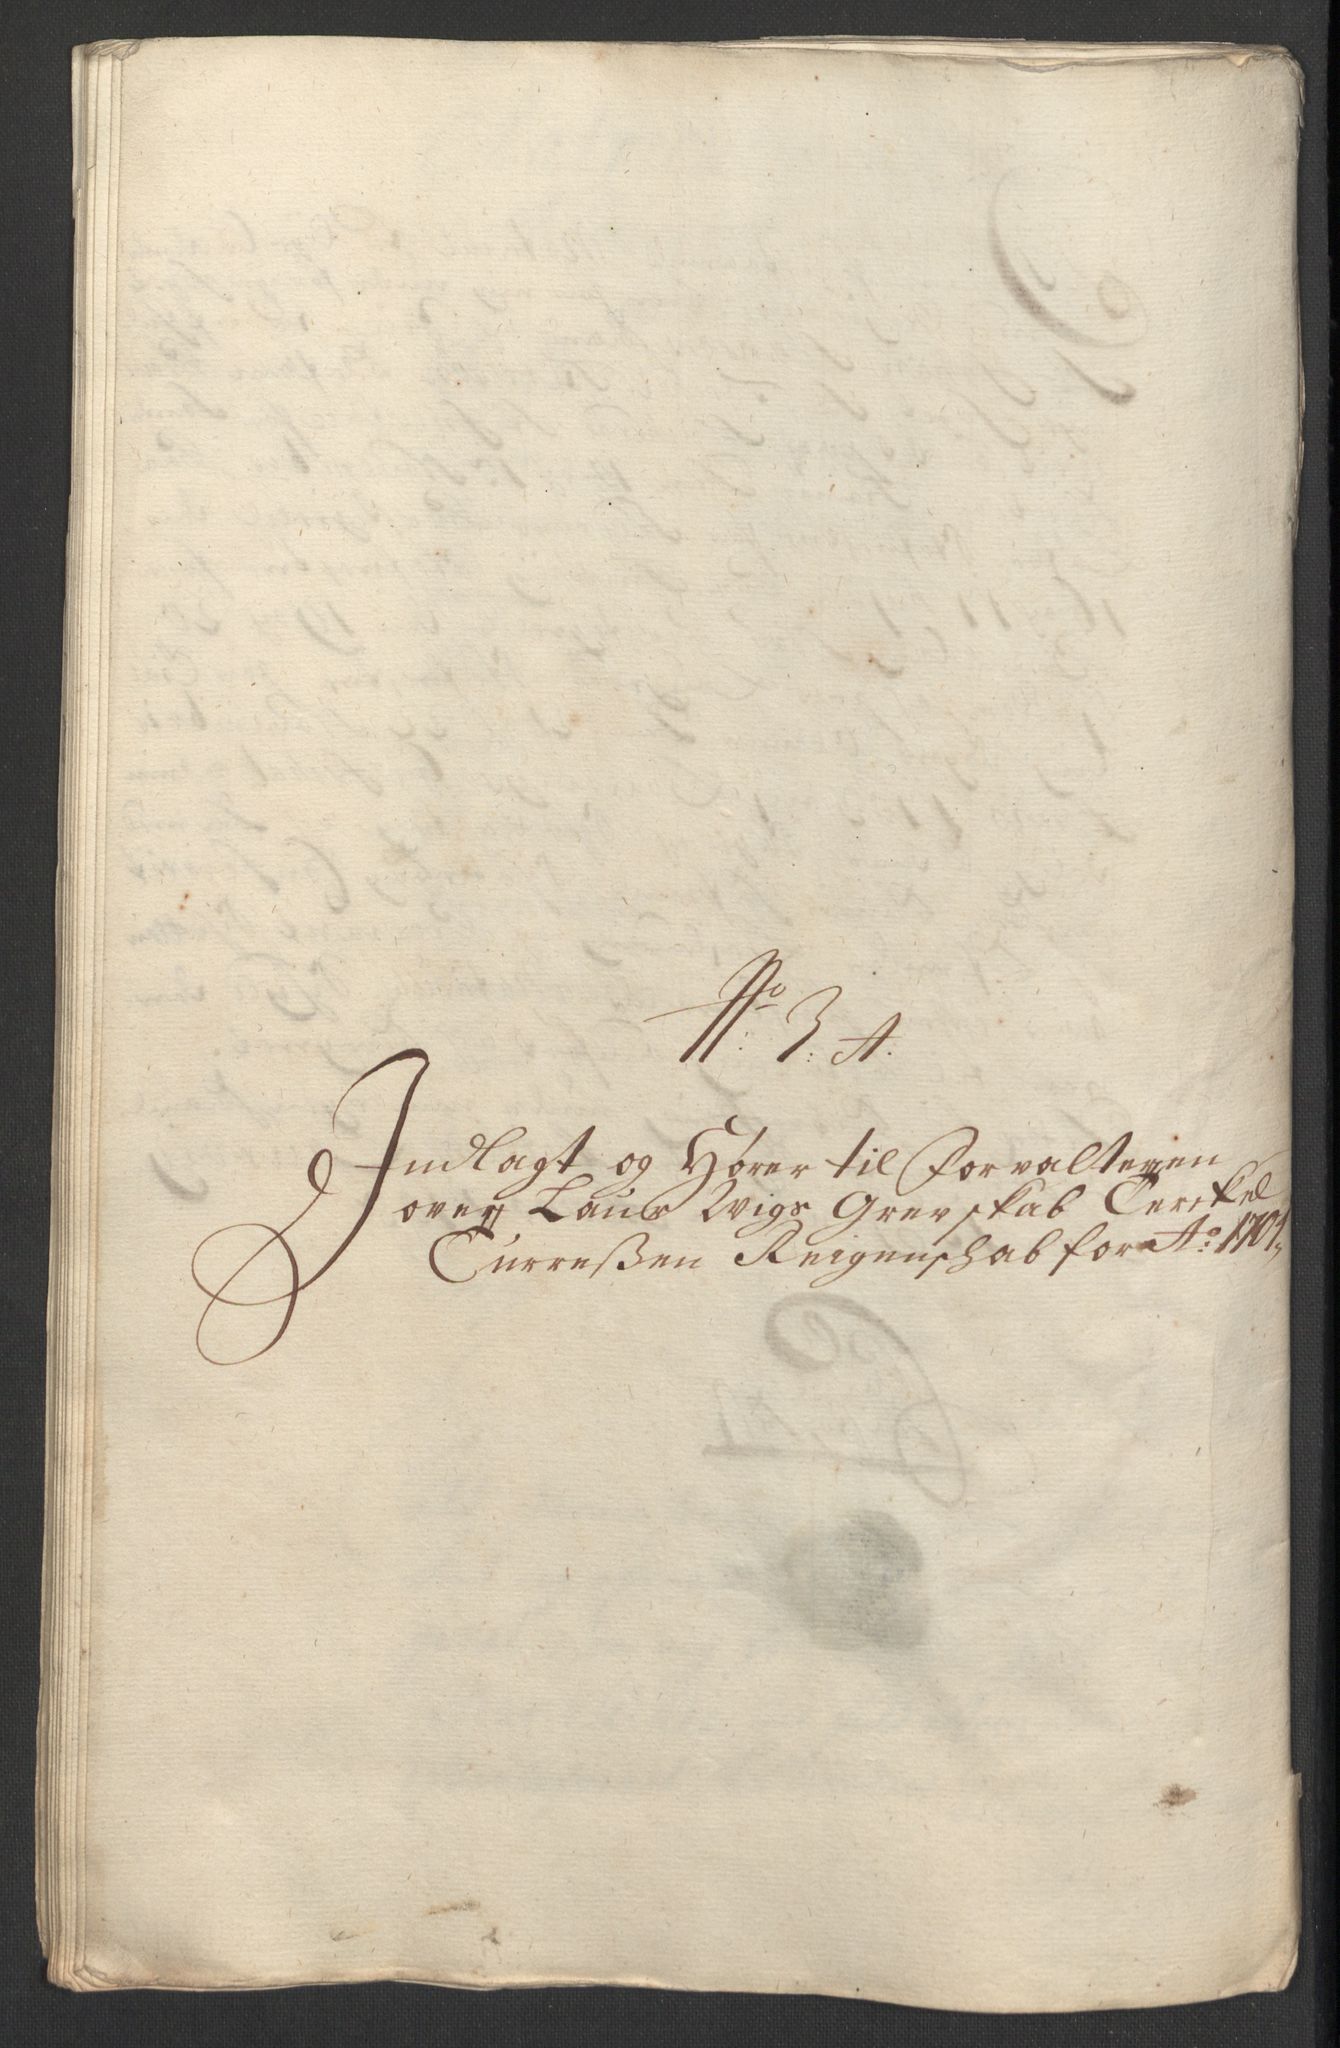 No: 3: A.
Indlagt og Hører til Forvalteren
over Laur Wigs Grevskab Terckel
Turreßen Reigenschab for Ao: 1701,